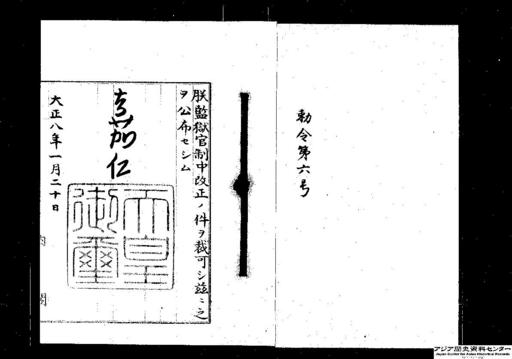 勅令第六号
朕監獄官制中改正ノ件ヲ裁可シ茲ニ之
ヲ公布セシム
嘉仁
天皇御璽
大正八年一月二十日
内閣
アジア歴史資料センター
Japan Center for Asian Historical Records